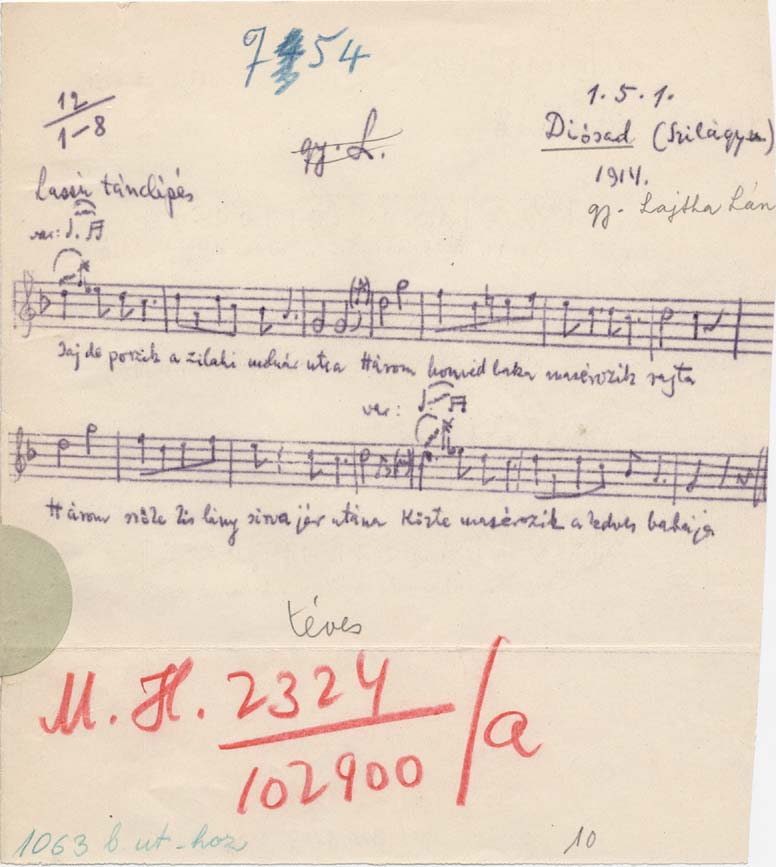 7454
12
1-8
1. 5. 1.
gy. L.
Diósad (Szilágy m)
1914.
gy. Lajtha Lán
Lassú tánclépés
var:
Jaj de porzik a zilahi molnár utca Három honvéd baka masérozik rajta
var:
Három szőke kis lány sirva jár utána Közte masérozik a kedves babája
téves
M. H. 2324/a
102900
1063 b ut-hoz
10